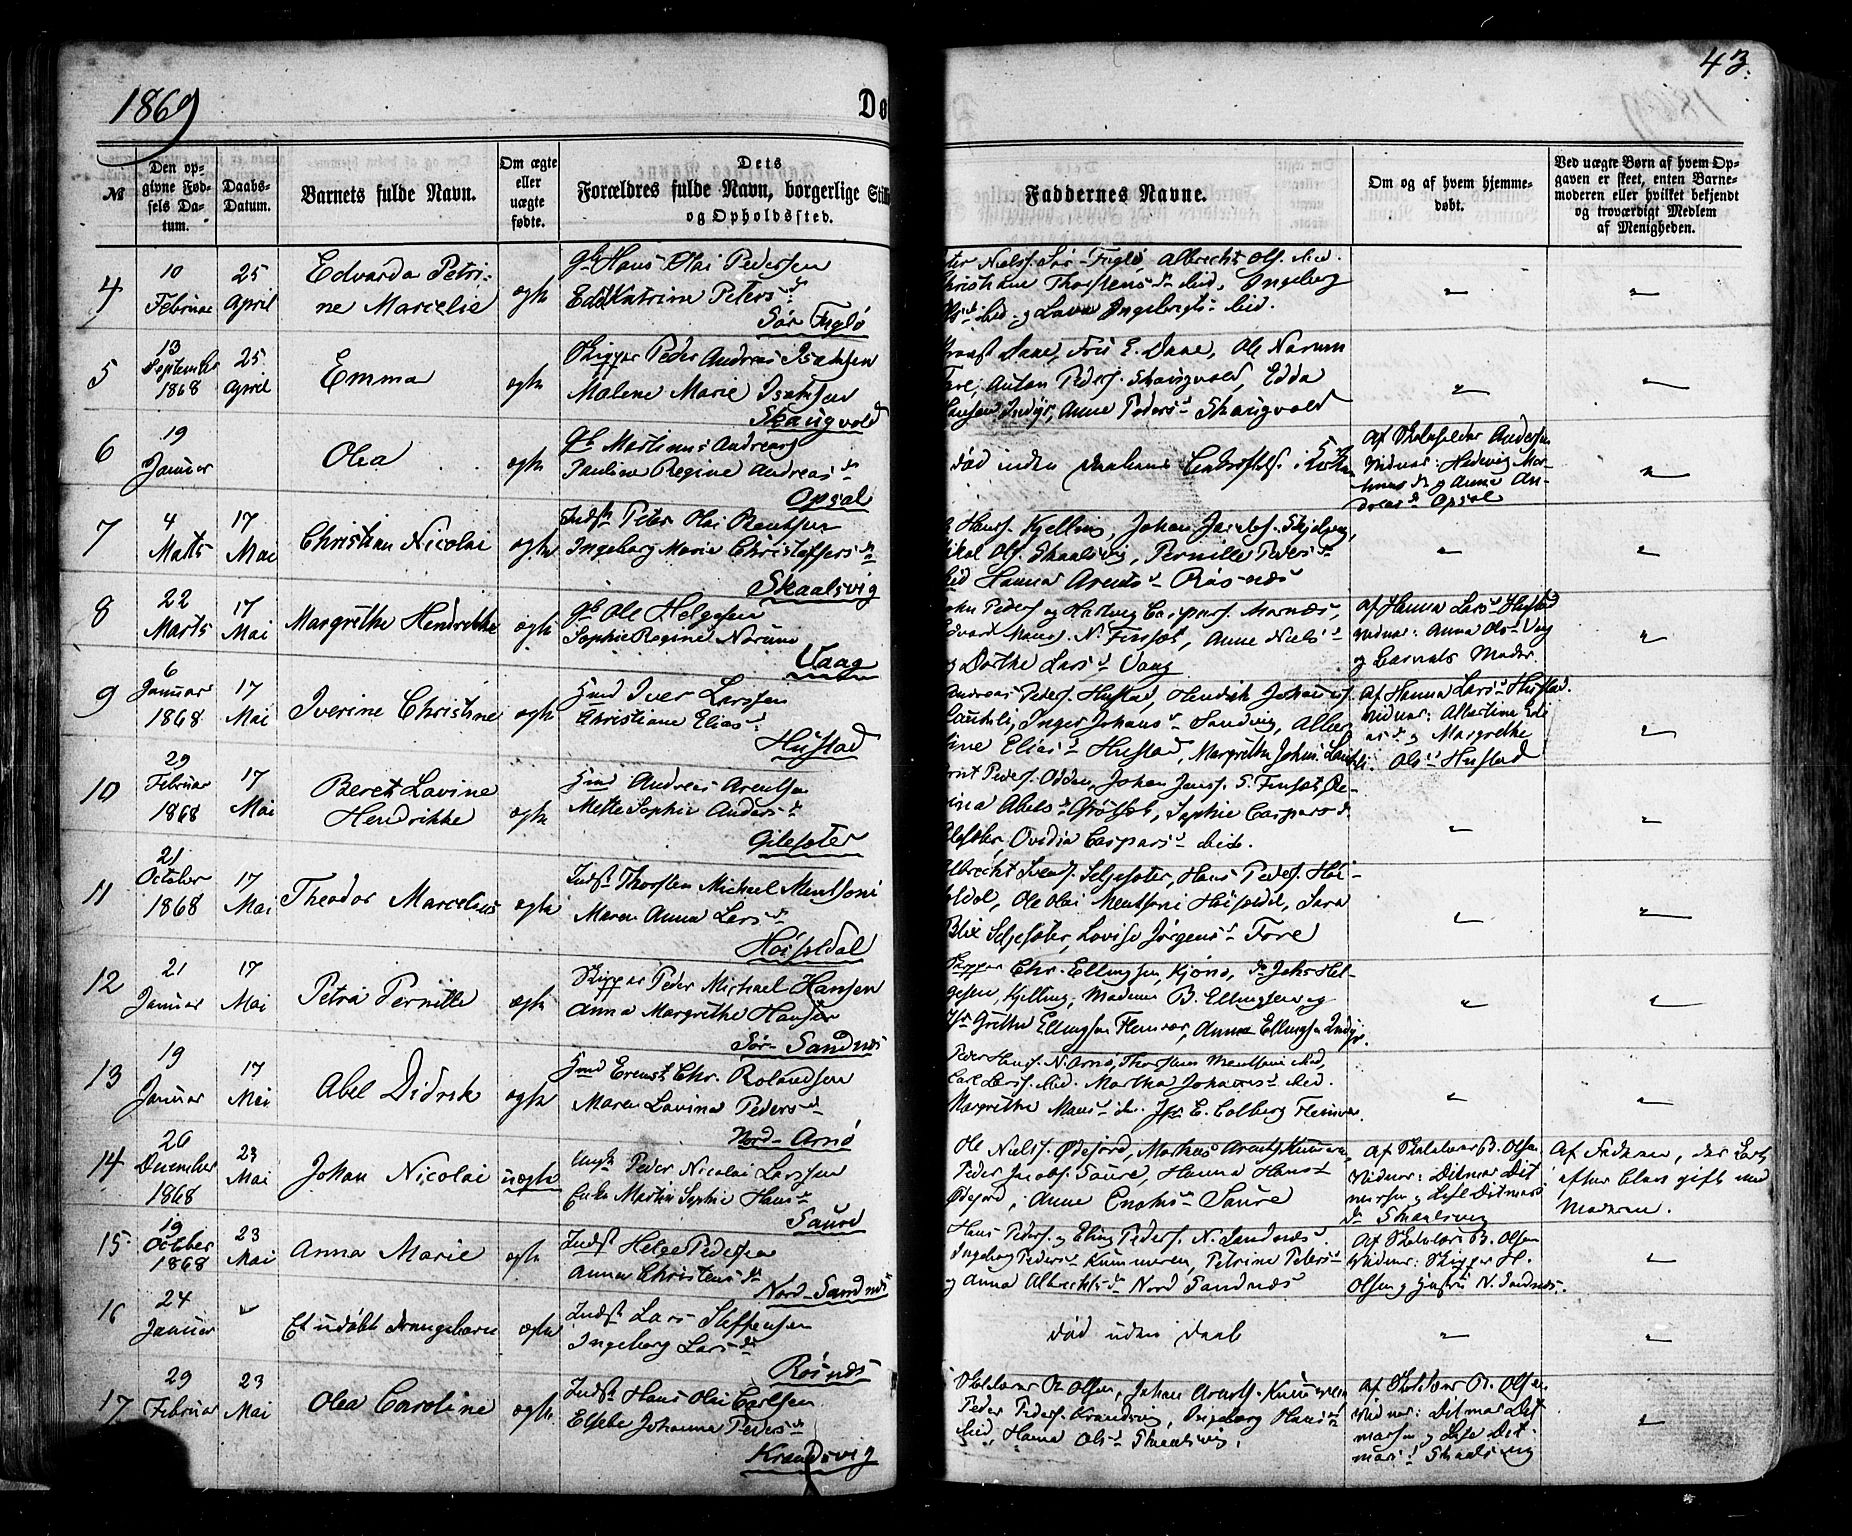 1869
Dø
43.
№
Den op-
givne Fød-
sels Da-
tum.
Daabs-
Datum.
Barnets fulde Navn.
Om ægte
eller
uægte
fødte.
Dets
Forældres fulde Navn, borgerlige Still
og Opholdssted.
Faddernes Navne.
Om og af hvem hjemme-
døbt.
Ved uægte Børn af hvem Op-
gaven er skeet, enten Barne-
moderen eller hvilket bekjendt
og troværdigt Medlem
af Menigheden.
4
10
Februar
25
April
Edvarda Petri-
ne Marcelie
ægte
Hans Olai Pedersen
Katrine Peters d:
Sør Fuglø
Niels. Sør-Fuglø, Albrecht Ols. ibid.
Thorstens d ibid, Ingeborg
ibid. og Lava Ingebrigts ibid.
5
13
September
1868
25
April
Emma
ægte
Skipper Peder Andreas Isaksen
Malene Marie Isaksen
Skaugvold
Ole Narum
Fore, Anton Peders. Skaugvold, Edda
Hansen Indyr, Anne Peders d Skaugvold
6
19
Januar
Olea
ægte
Gb Martinus Andreas
Pauline Regine Andreas d
Opsal
død inden
Af Skoleholder Andersen
Vidner: Hedevig Mar-
tinus d og Anne An-
dreas d Opsal
7
4
Marts
17
Mai
Christian Nicolai
ægte
Indst Peter Olai Bentsen
Ingeborg Marie Christoffers d
Skaalsvig
Hans. Kjelling, Johan Jacobs. Skjelvig,
Mikal Ols. Skaalsvig, Pernille Peders d
ibid Hanna Arents d Røsnæs
8
22
Marts
17
Mai
Margrethe Hendrikke
ægte
Gb Ole Helgesen
Sophie Regine Narum
Vaag
John Peders. og Hartvig Caspers. Marnæs,
Edvard Hans. N. Finset, Anne Niels d
og Dorthe Lars d Vaag
af Hanna Lars d Hustad
Vidner: Anna Ols d Vaag
og Barnets Moder.
9
6
Januar
1868
17
Mai
Iverine Christine
ægte
Gmd Iver Larssen
Christiane Elias d
Hustad
Andreas Peders. Hustad, Hendrik Johans.
Inger Johans d Sandvig, Alber-
tine Elias d Hustad, Margrethe Johns.
Af Hanna Lars d Hustad.
Vidner: Albertine Eli-
as d og Margrethe
Ols d Hustad
10
29
Februar
1868
17
Mai
Beret Lavine
Hendrikke
ægte
Gmd Andreas Arentsen
Mette Sophie Anders d
Gilesæter
Peders. Odden, Johan Jans. S. Finset, Re-
gina Abels d Grøset, Sophie Caspers d
Ovidia Caspers d ibid.
11
21
October
1868
17
Mai
Theodor Marcelius
ægte
Indst Thorsten Michael Mentsoni
Maren Anna Lars d
Høiseldal
Albrecht Svends. Seljesæter, Hans Peders. Høi-
seldal, Ole Olai Mentsoni Høiseldal, Sara
Blix Seljesæter, Lovise Jørgens d Fore
12
21
Januar
17
Mai
Petra Pernille
ægte
Skipper Peder Michael Hansen
Anna Margrethe Hansen
Sør-Sandnes
Skipper Chr. Ellingsen, Kjønø, do Johs Hel-
gesen, Kjelling, Madame B. Ellingsen og
Jfr Grethe Ellingsen Fleinvær, Anna Ellingsen Indyr.
13
19
Januar
17
Mai
Abel Didrik
ægte
Gmd Ernst Chr. Rolandsen
Maren Lavina Peders d
Nord-Arnø
Peder Hans. N. Arnø, Thorsten Mentsoni ibid,
Carl Lars. ibid. Martha Johannes d ibid.
Margrethe Hans d do. Jfr E. Colberg Fleinvær
14
26
December
1868
23
Mai
Johan Nicolai
uægte
Ungk Peder Nicolai Larssen
Enke Martin Sophie Hans d
Saure
Ole Niels. Ødefjord, Mathias Arents. Kunna,
Peder Jacobs. Saure, Hanna Hans d
Ødefjord, Anne Enoks d Saure
Af Skolelærer B. Olsen
Vidner: Ditmar Dit-
marsen og Lise Ditmars
d Skaalsvig
Af Faderen, der
gift med
Moderen.
15
19
October
1868
23
Mai
Anna Marie
ægte
Indst Helge Pedersen
Anna Christens d
Nord-Sandnes
Hans Peders. og Eling Peders. N. Sandnæs.
Ingeborg Peders d Kummeren, Petrine Peters d
og Anna Albrechts d Nord Sandnæs
Af Skolelærer B. Olsen
Vidner: Skipper H.
Olsen og Hustru N. Sandnæs.
16
24
Januar
Et udøbt Drengebarn
ægte
Indst Lars Steffensen
Ingeborg Lars d
Røsnæs
død uden Daab
17
29
Februar
23
Mai
Olea Caroline
ægte
Indst Hans Olai Carlsen
Elsebe Johanna Peders d
Krandsvig
Skolelærer B. Olsen, Johan Arnts. Kummeren
Peder Peders. Krandsvig, Ingeborg Hans d
ibid, Hanna Ols d Skaalsvig.
Af Skolelærer B. Olsen
Vidner: Ditmar Dit-
marsen og Lise Dit-
mars d Skaalsvig